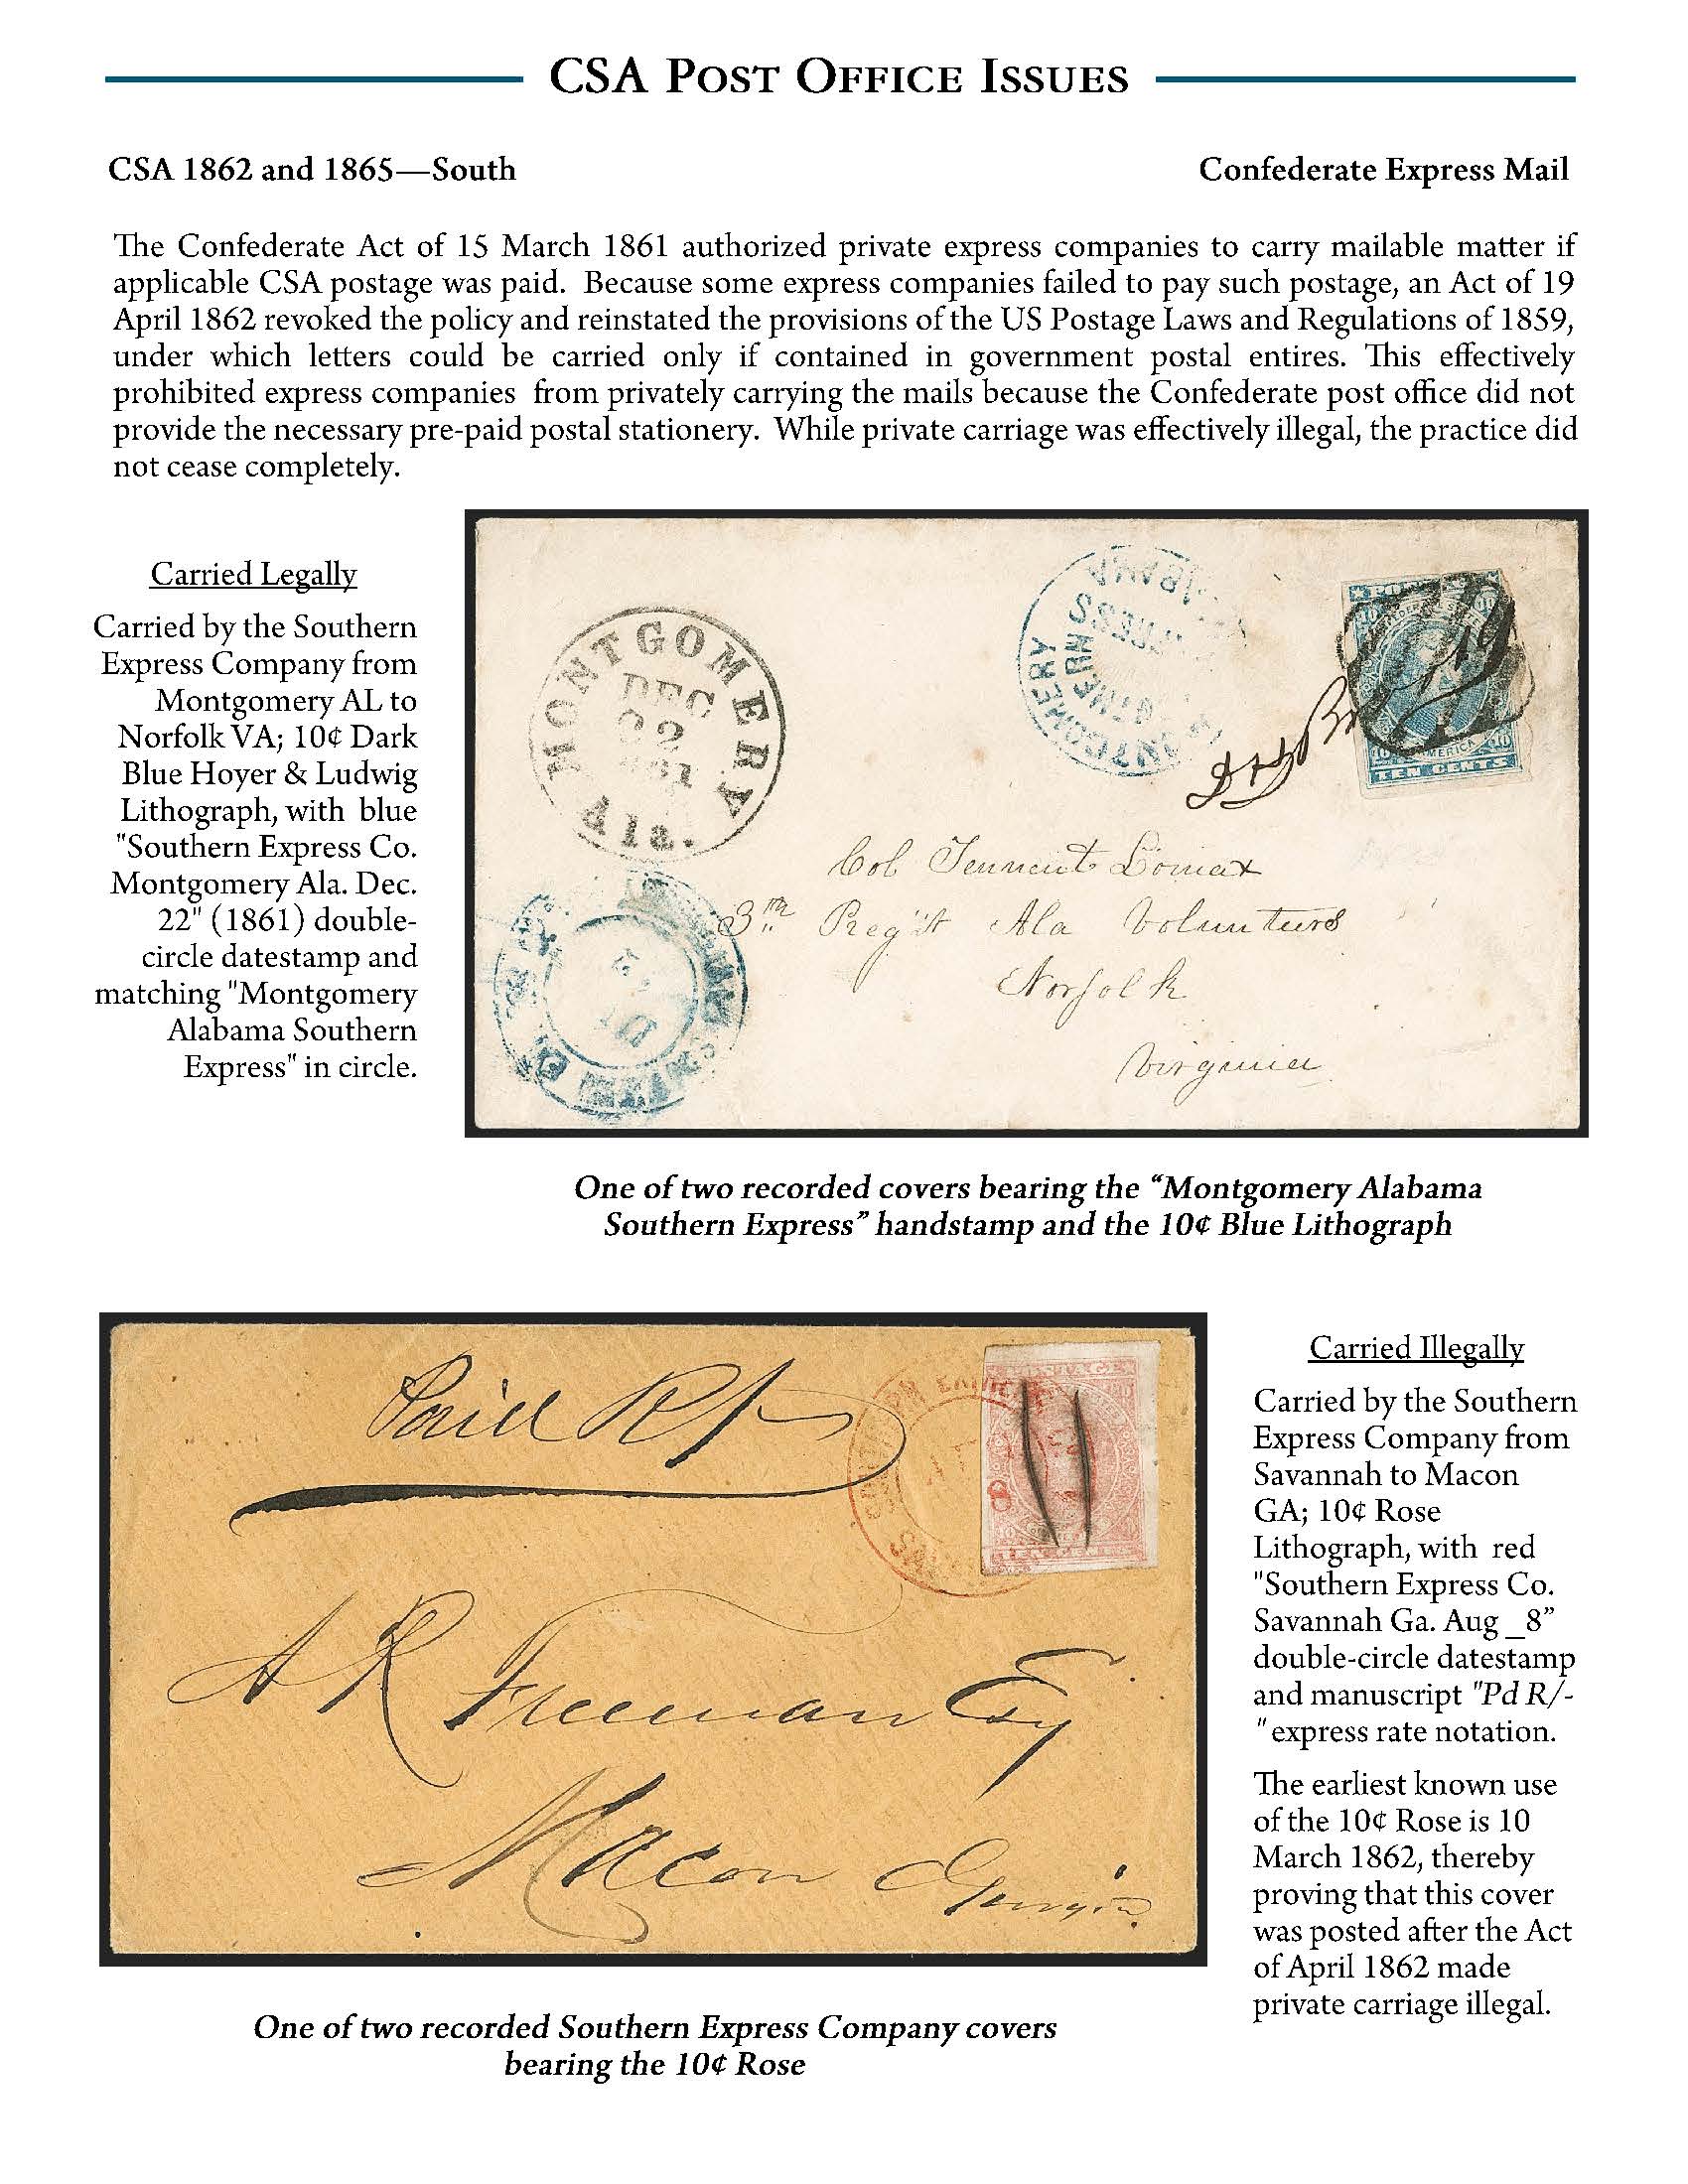 CSA Post Office Issues
CSA 1862 and 1865—South
Confederate Express Mail
The Confederate Act of 15 March 1861 authorized private express companies to carry mailable matter if
applicable CSA postage was paid.  Because some express companies failed to pay such postage, an Act of 19
April 1862 revoked the policy and reinstated the provisions of the US Postage Laws and Regulations of 1859,
under which letters could be carried only if contained in government postal entires. This effectively
prohibited express companies  from privately carrying the mails because the Confederate post office did not
provide the necessary pre-paid postal stationery.  While private carriage was effectively illegal, the practice did
not cease completely.
Carried Legally
Carried by the Southern
Express Company from
Montgomery AL to
Norfolk VA; 10¢ Dark
Blue Hoyer & Ludwig
Lithograph, with  blue
"Southern Express Co.
Montgomery Ala. Dec.
22" (1861) double-
circle datestamp and
matching "Montgomery
Alabama Southern
Express" in circle.
MONTGOMERY Ala.
DEC
22
1861
MONTGOMERY
TEN CENTS
Col Tennent Lomax
3rd Reg't Ala Volunteers
Norfolk
Virginia
One of two recorded covers bearing the “Montgomery Alabama
Southern Express” handstamp and the 10¢ Blue Lithograph
Paid R/-
SOUTHERN
8
A R Freeman Esq
Macon Georgia
Carried Illegally
Carried by the Southern
Express Company from
Savannah to Macon
GA; 10¢ Rose
Lithograph, with  red
"Southern Express Co.
Savannah Ga. Aug _8”
double-circle datestamp
and manuscript "Pd R/-
" express rate notation.
The earliest known use
of the 10¢ Rose is 10
March 1862, thereby
proving that this cover
was posted after the Act
of April 1862 made
private carriage illegal.
One of two recorded Southern Express Company covers
bearing the 10¢ Rose